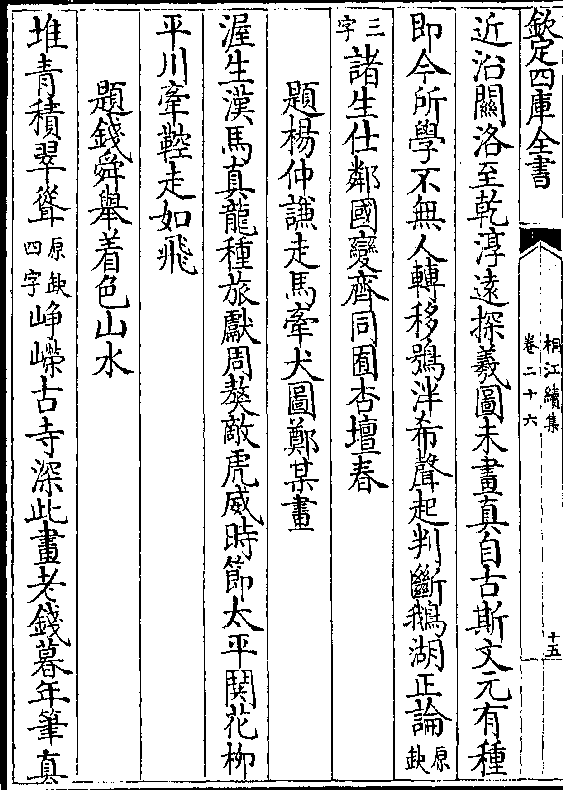 欽定四庫全書
桐江續集
卷二十六
十五
近沿關洛至乾淳遠探羲圖未畫真自古斯文元有種
即今所學不無人轉移鴞泮希聲起判斷鵝湖正論原缺
三字諸生仕鄰國變齊同囿杏壇春
題楊仲謙走馬牽犬圖鄭某畫
渥生漢馬真龍種旅獻周獒敵虎威時節太平閑花柳
平川牽鞚走如飛
題錢舜舉着色山水
堆青積翠聳原缺四字崢嶸古寺深此畫老錢暮年筆真